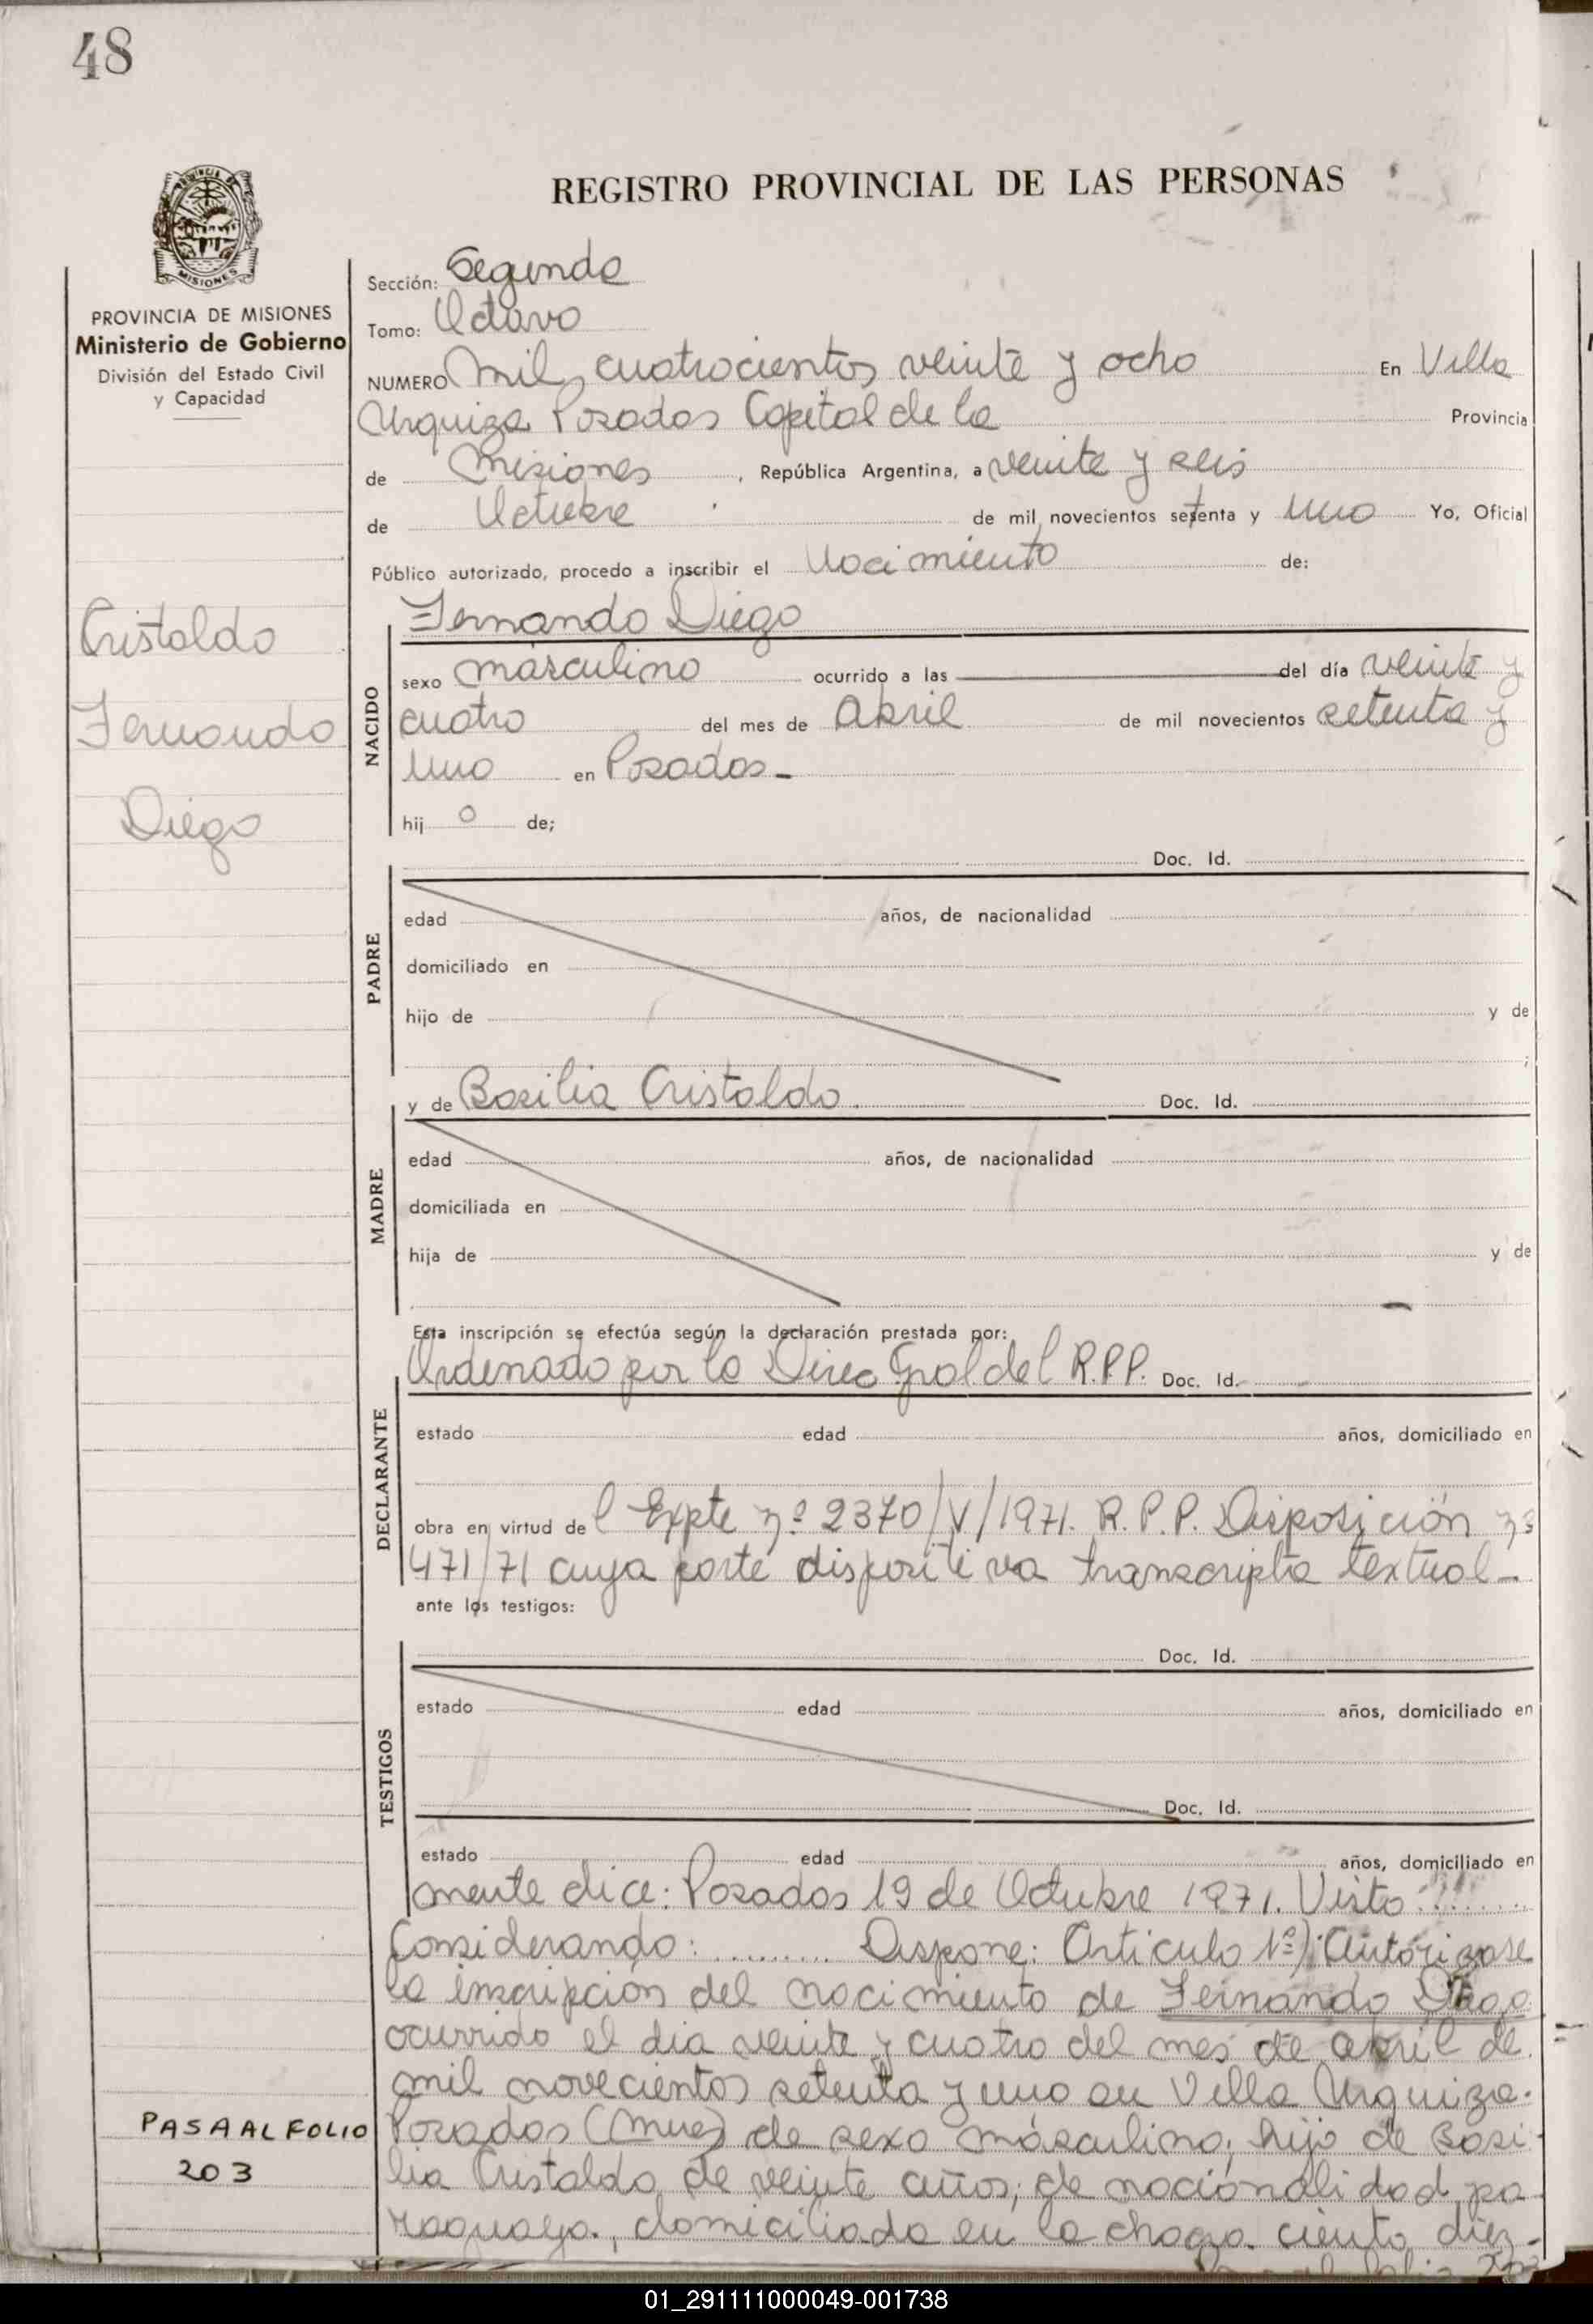 48
REGISTRO PROVINCIAL DE LAS PERSONAS
MISIONES
PROVINCIA DE MISIONES
Ministerio de Gobierno
División del Estado Civil
y Capacidad
Sección: Segunda
Tomo: Octavo
NUMERO Mil cuatrocientos veinte y ocho En Villa
Urquiza Posadas Capital de la Provincia
de Misiones, República Argentina, a veinte y seis
de Octubre de mil novecientos setenta y uno Yo, Oficial
Público autorizado, procedo a inscribir el Nacimiento de:
Cristaldo
Fernando
Diego
NACIDO
Fernando Diego
sexo másculino ocurrido a las del día veinte y
cuatro del mes de Abril de mil novecientos setenta y
uno en Posadas-
hij o de;
PADRE
Doc. Id.
edad años, de nacionalidad
domiciliado en
hijo de y de
;
MADRE
y de Basilia Cristaldo. Doc. Id.
edad años, de nacionalidad
domiciliada en
hija de y de
Esta inscripción se efectúa según la declaración prestada por:
DECLARANTE
Ordenado por la Direc Gral del R.P.P. Doc. Id.
estado edad años, domiciliado en
obra en virtud de l Expte nº 2370/V/1971. R.P.P. Disposición nº
471/71 cuya parte dispositiva transcripta textual-
ante los testigos:
TESTIGOS
Doc. Id.
estado edad años, domiciliado en
Doc. Id.
estado edad años, domiciliado en
mente dice: Posadas 19 de Octubre 1971. Visto:........
Considerando: ......... Dispone: Articulo 1º) Autórizase
la inscripción del nacimiento de Fernando Diego
ocurrido el dia veinte y cuatro del mes de abril de
mil novecientos setenta y uno en Villa Urquiza.
Posadas (Mnes) de sexo másculino, hijo de Basi-
lia Cristaldo, de veinte años, de nacionalidad pa-
raguaya., domiciliada en la chacra ciento diez-
PASA AL FOLIO
203
01_291111000049-001738